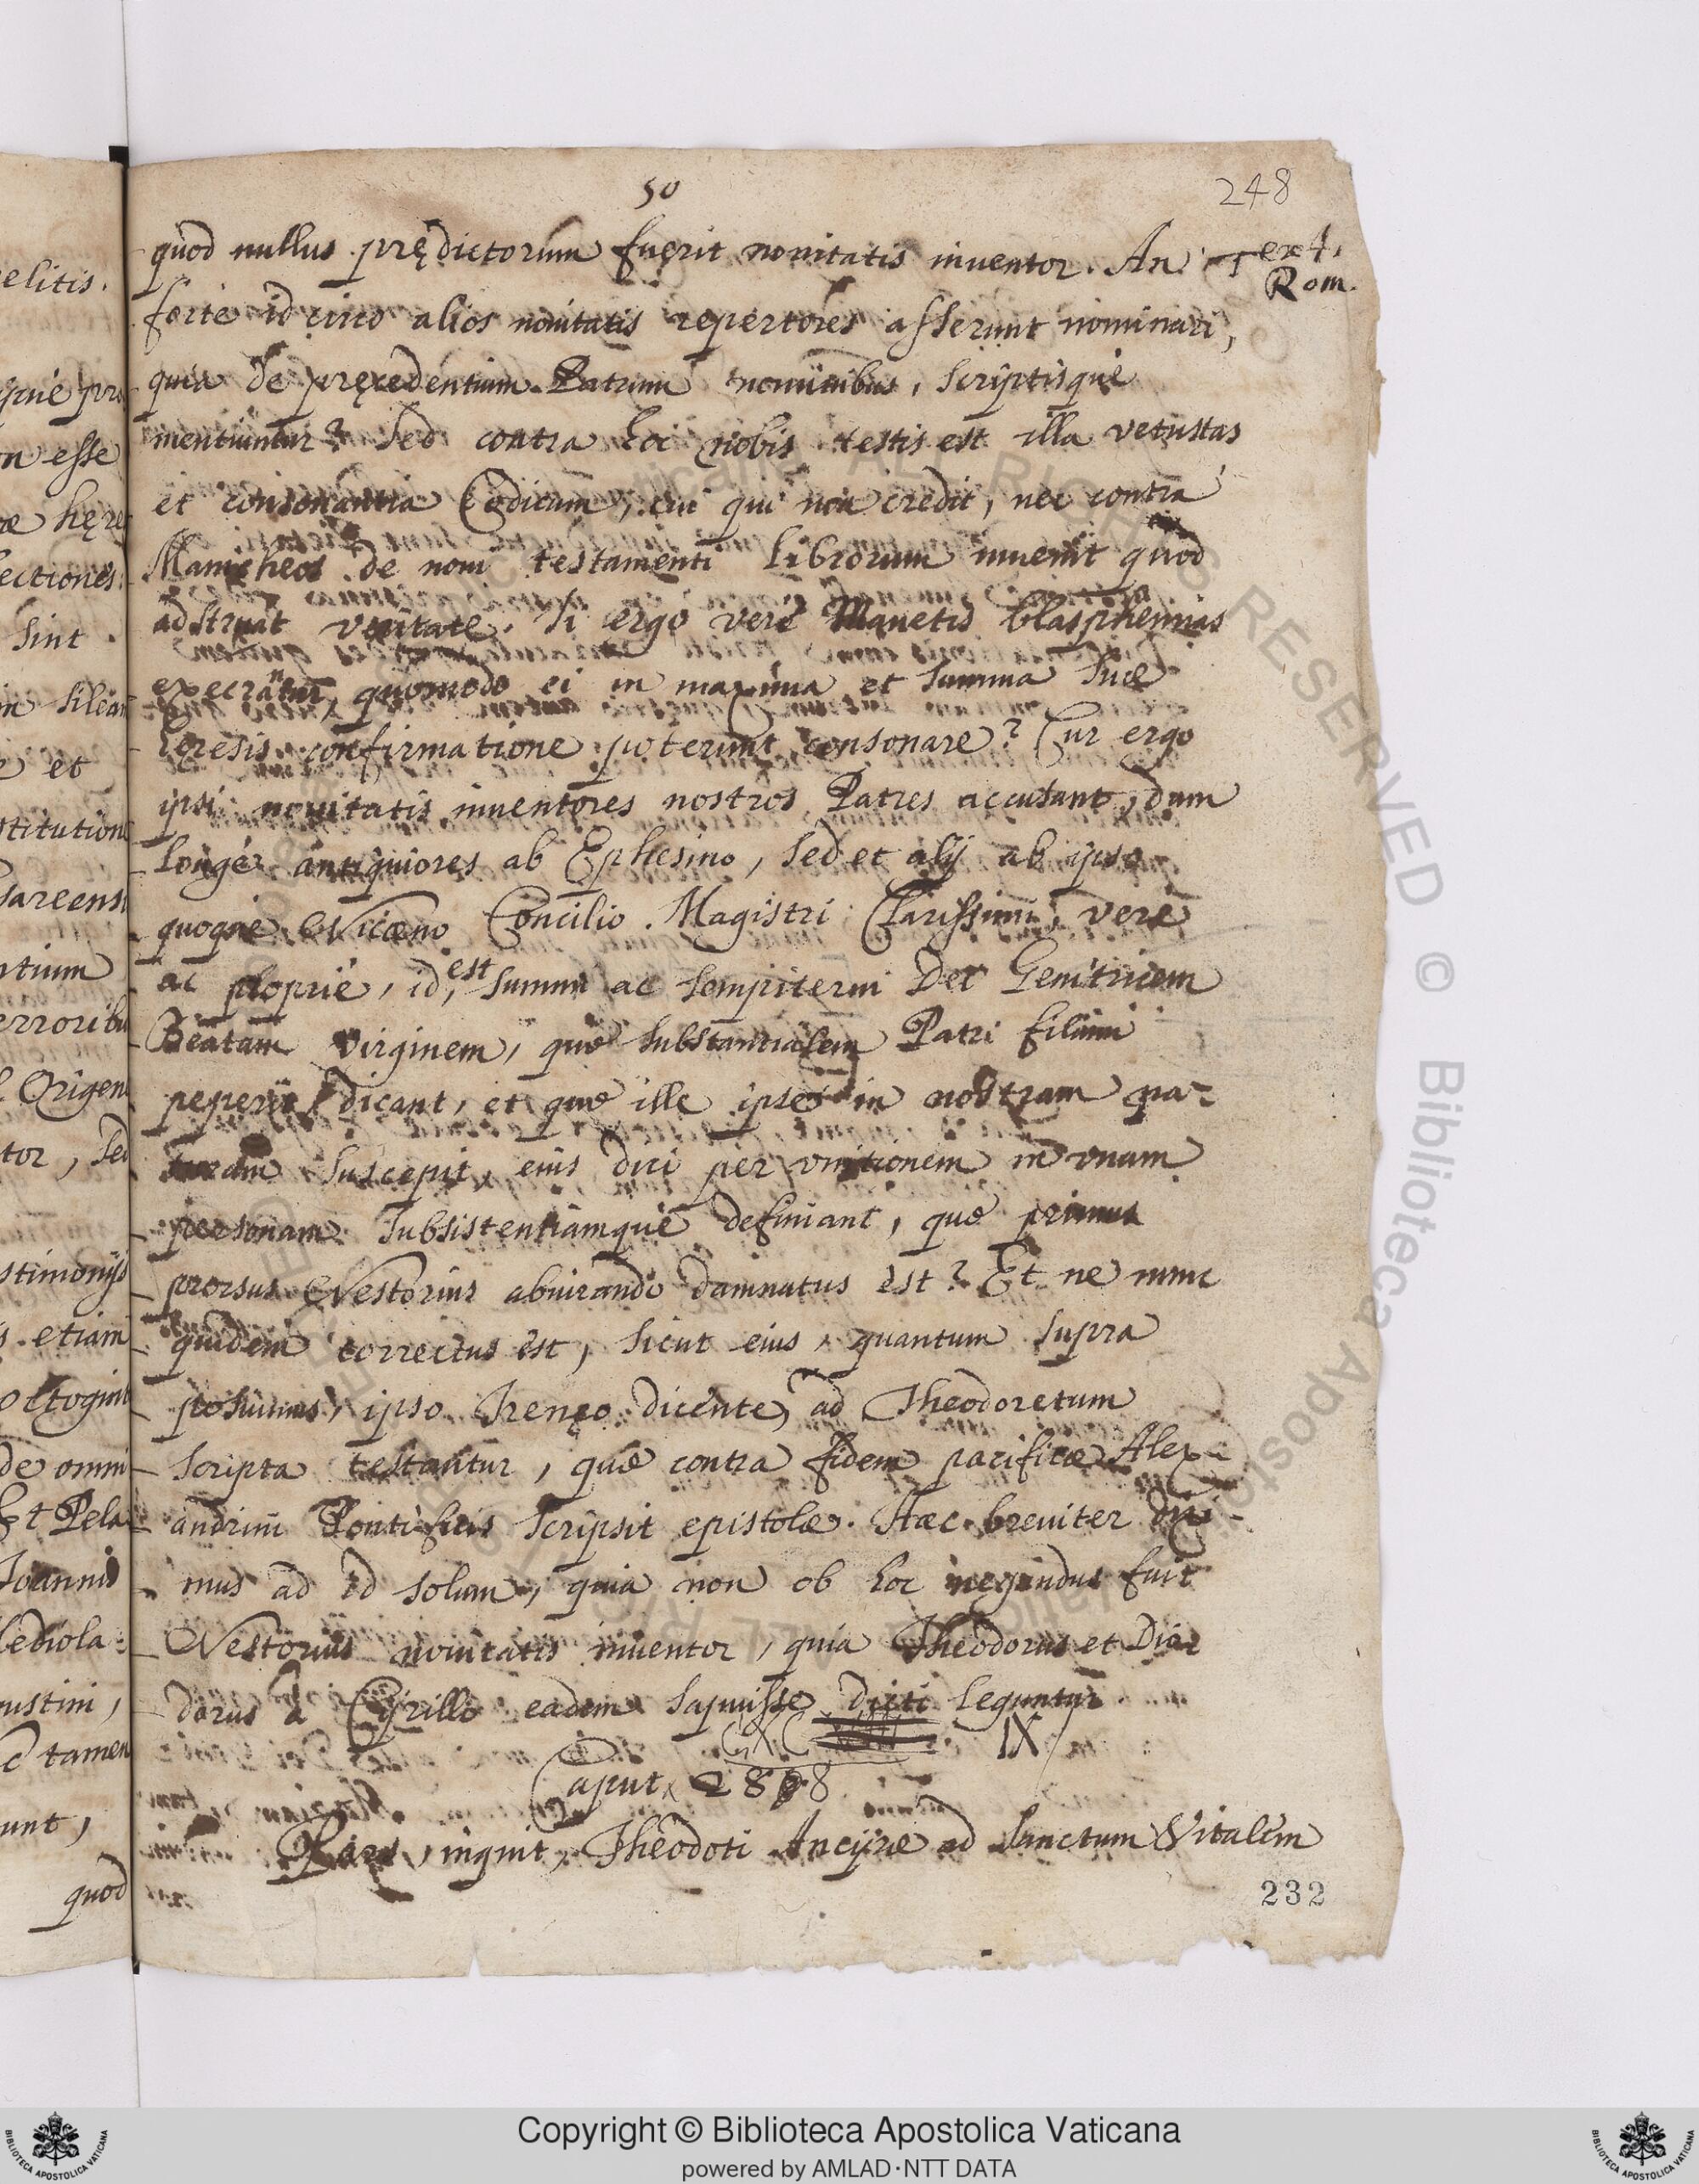 50
248
quod nullus prędictorum fuerit nouitatis inuentor. An
Tex 4.
Rom.
forte id circo alios nouitatis repertores asserunt nominari,
quia de pręcedentium Patrum nominibus, scriptisque
mentiuntur? Sed contra hoc nobis testis est illa vetustas
et consonantia Codicum, cui qui non credit, nec contra
Manicheos de noui testamenti librorum inuenit quod
adstruat veritate. Si ergo vere Manetis blasphemias
execrantur, quomodo ei in maxima et summa suæ
heresis confirmatione poterunt consonare? Cur ergo
ipsi nouitatis inuentores nostros Patres accusant, dum
longe antiquiores ab Ephesino, sed et alij ab ipso
quoque Nicæno Concilio. Magistri Clarissimi, vere
ac proprie, id est, summi ac sempiterni Dei Genitricem
Beatam Virginem, quæ substantialem Patri filium
peperit, dicant, et quæ ille ipse in nostram na-
turam suscepit, eius dici per vnitionem in vnam
personam subsistentiamque definiant, quæ primus
prorsus Nestorius abiurando damnatus est? Et ne nunc
quidem correctus est, sicut eius, quantum supra
posuimus, ipso Irenęo dicente, ad Theodoretum
scripta testantur, quæ contra fidem pacificæ Alex-
andrini Pontificis scripsit epistolæ. Hæc breuiter dixi-
mus ad id solum, quia non ob hoc negandus fuit
Nestorius nouitatis inuentor, quia Theodorus et Dio-
dorus à Cyrillo eadem sapuisse dicti leguntur
CXC IX
Caput 288
Rars, inquit, Theodoti Ancyræ ad Sanctum Vitalem
232
elitis.
ipue pro
n esse
æ hęre
lectiones
sint.
in silean
et
stitution
sareensi
ntium
erroribu
Origen
tor, sed
stimonijs
etiam
octogint
de omni
Et Pela
Joannis
Mediola-
gustini,
c tamen
unt,
quod
Copyright © Biblioteca Apostolica Vaticana
powered by AMLAD·NTT DATA